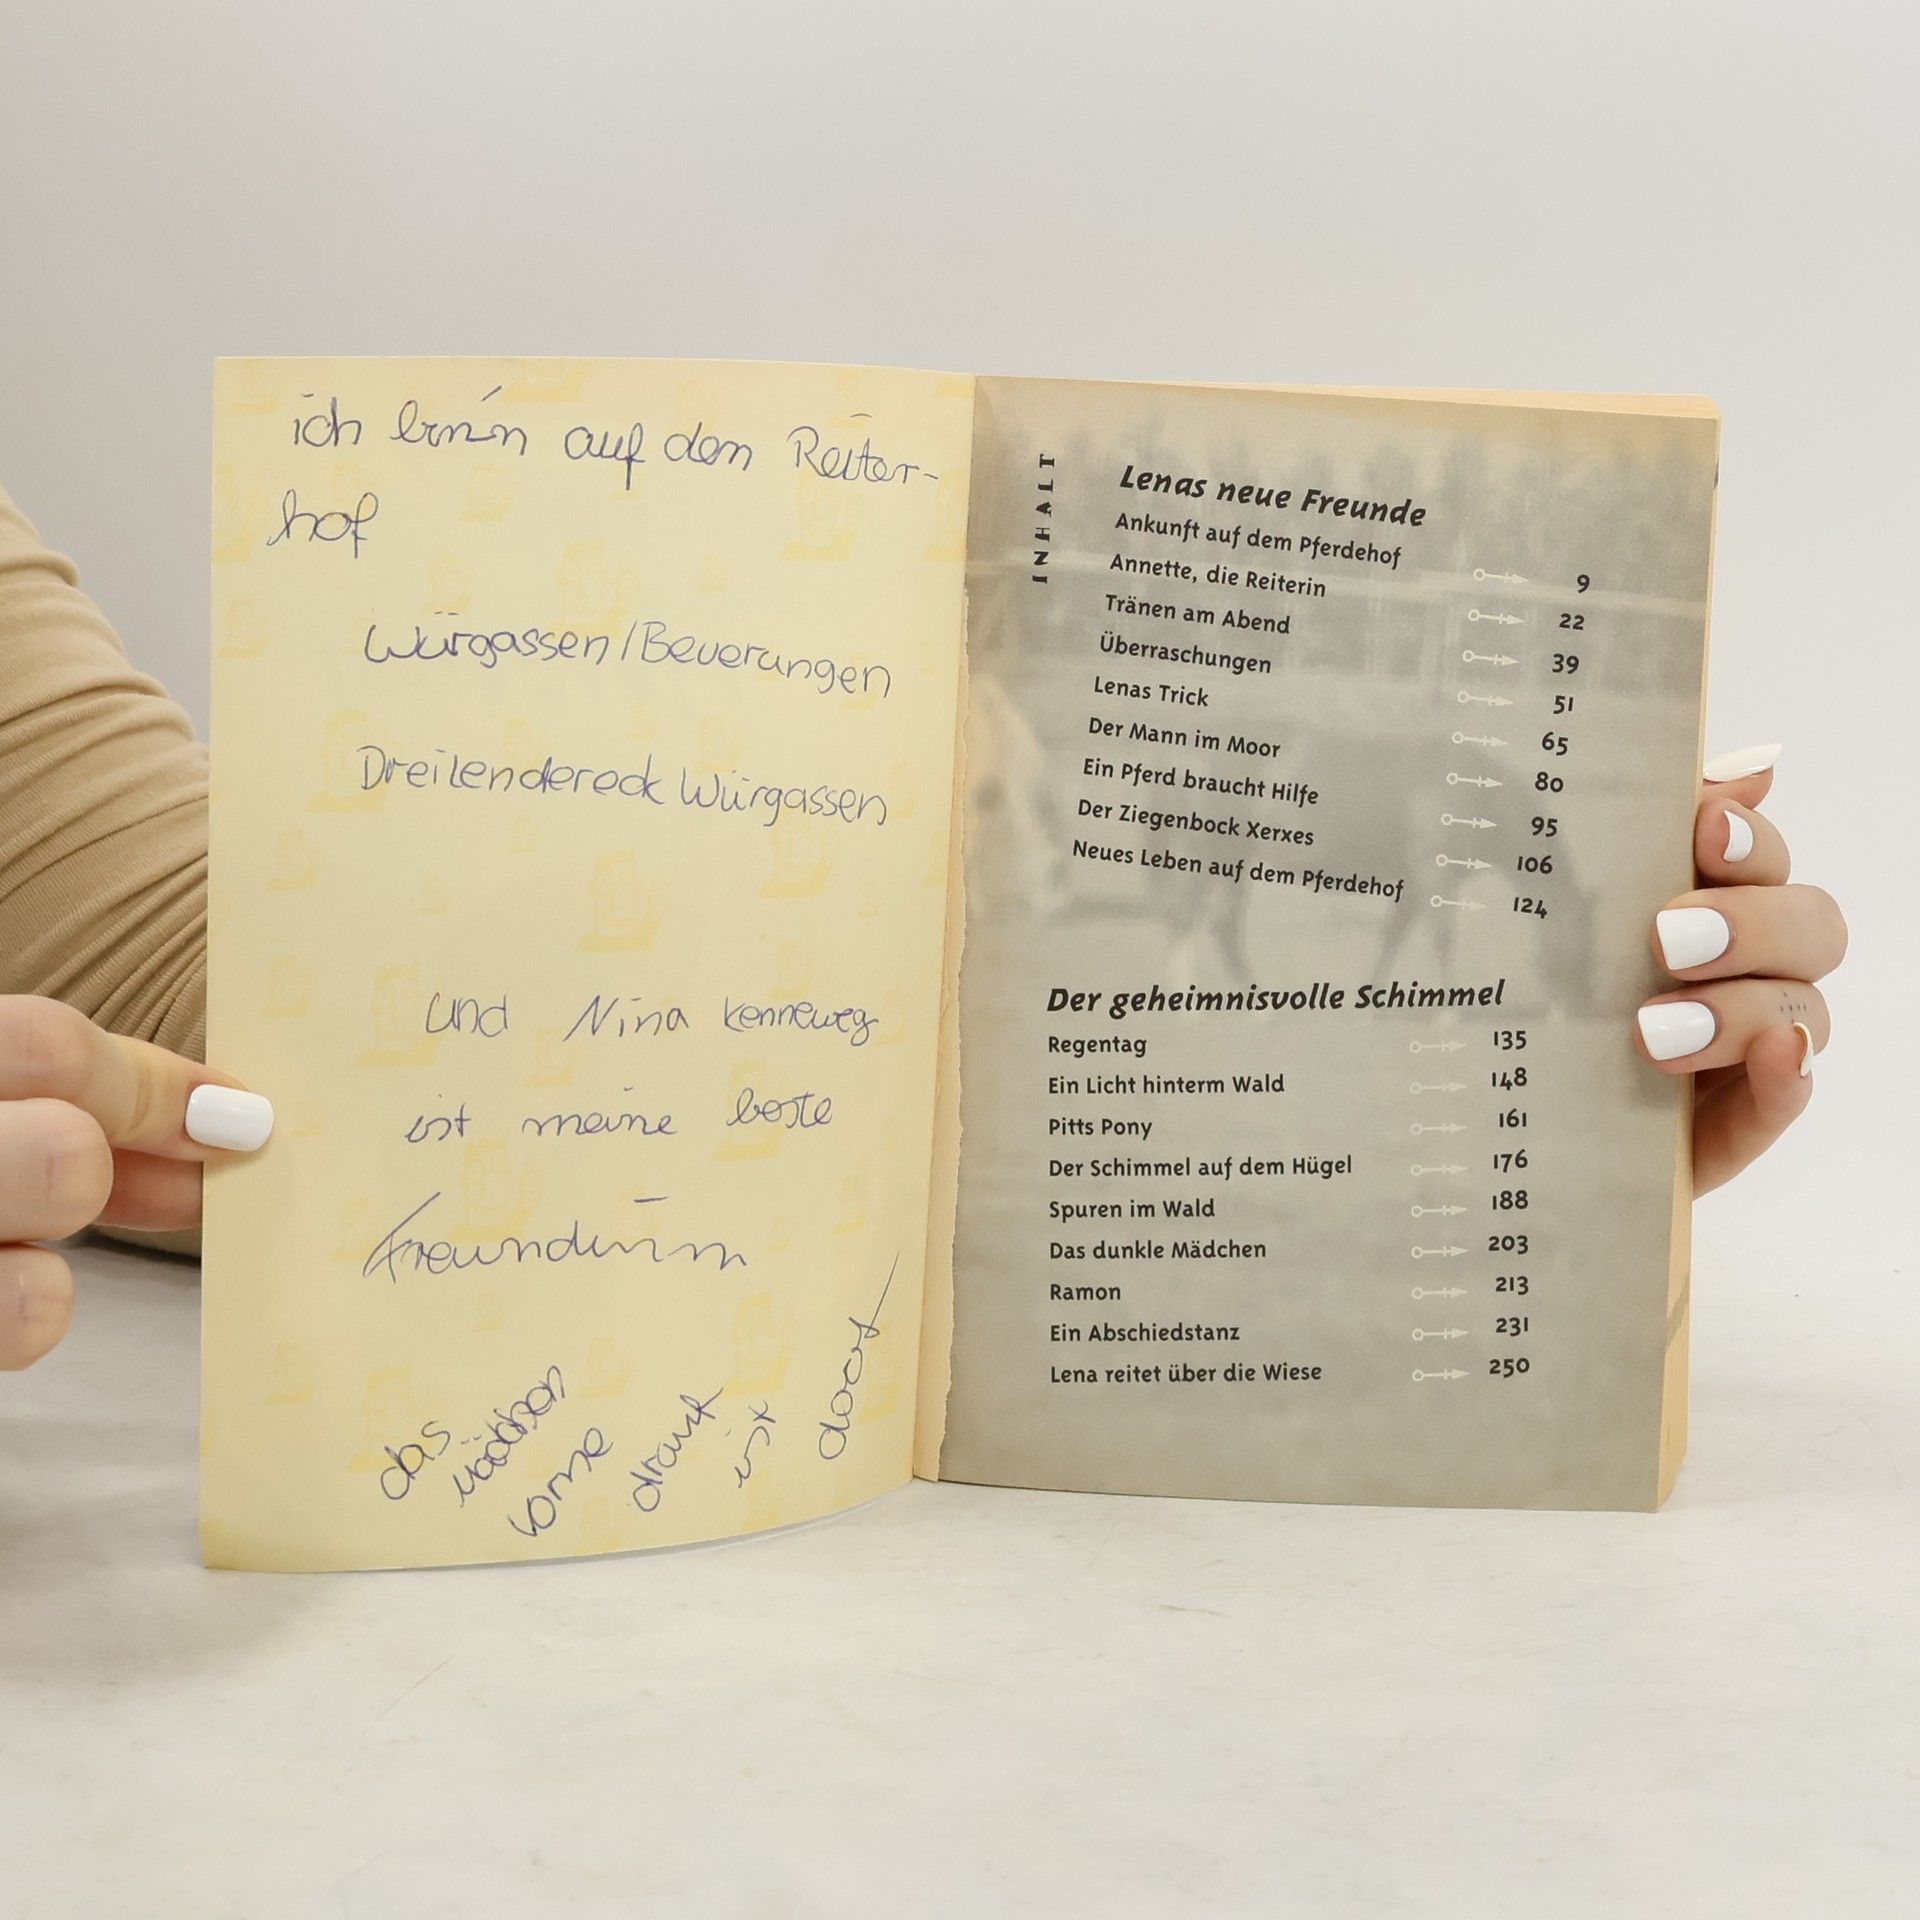 ich bin in auf dem Reiter-
hof
Würgassen/Beverungen
Dreilendereck Würgassen
und Nina Kenneweg
ist meine beste
Freundinn
das
Mädchen
vorne
drauf
ist
doof
INHALT
Lenas neue Freunde
Ankunft auf dem Pferdehof 9
Annette, die Reiterin 22
Tränen am Abend 39
Überraschungen 51
Lenas Trick 65
Der Mann im Moor 80
Ein Pferd braucht Hilfe 95
Der Ziegenbock Xerxes 106
Neues Leben auf dem Pferdehof 124
Der geheimnisvolle Schimmel
Regentag 135
Ein Licht hinterm Wald 148
Pitts Pony 161
Der Schimmel auf dem Hügel 176
Spuren im Wald 188
Das dunkle Mädchen 203
Ramon 213
Ein Abschiedstanz 231
Lena reitet über die Wiese 250